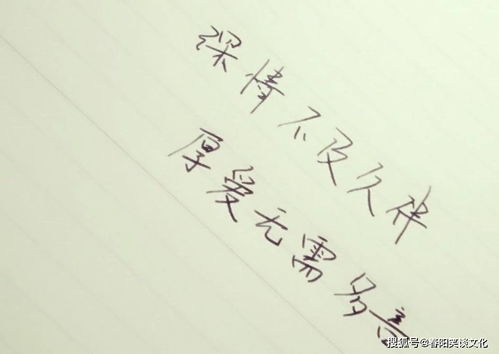 深情不及久伴
厚爱无需多言
搜狐号@春阳笑谈文化